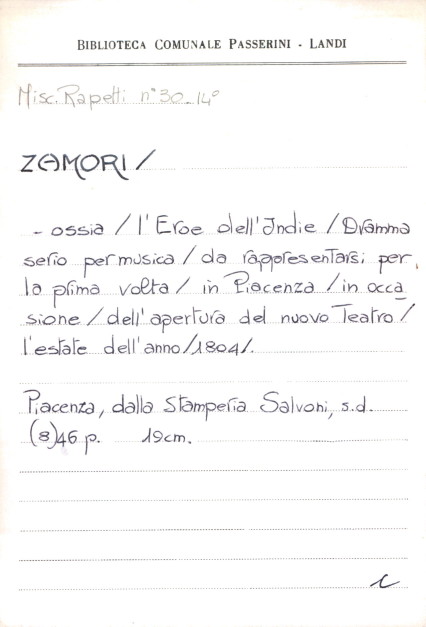 BIBLIOTECA COMUNALE PASSERINI - LANDI
Misc. Rapetti n° 30 - 14°
ZAMORI /
- ossia / l'Eroe dell'Indie / Dramma
serio per musica / da rappresentarsi per
la prima volta / in Piacenza / in occa
sione / dell'apertura del nuovo Teatro /
l'estate dell'anno / 1804 /.
Piacenza, dalla Stamperia Salvoni, s.d.
(8) 46 p. 19 cm.